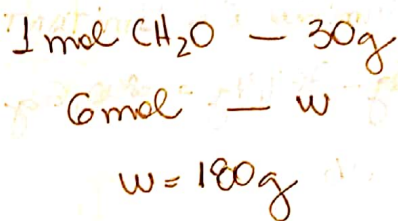 1 mol CH₂O — 30g
6 mol — w
w = 180g